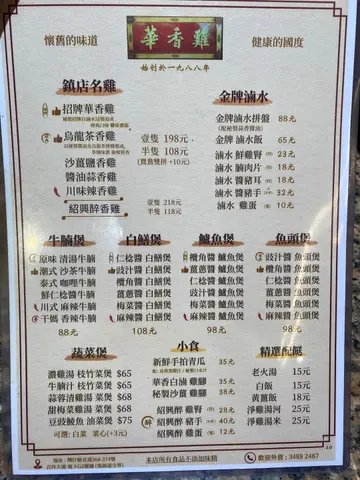 懷舊的味道
華香雞
健康的國度
始創於一九八八年
鎮店名雞
招牌華香雞
烏龍茶香雞
沙薑鹽香雞
醬油蒜香雞
川味辣香雞
壹隻 198元
半隻 108元
(鴛鴦雙拼 +10元)
紹興醉香雞
壹隻 218元
半隻 118元
金牌滷水
金牌滷水拼盤 88元
(配秘製蒜香醬油)
金牌滷水飯 65元
滷水 鮮雞腎 (例) 23元
滷水 腩肉片 (例) 18元
滷水 醬豬耳 (例) 18元
滷水 醬豬手 (例) 32元
滷水 雞蛋 (隻) 10元
牛腩煲
原味 清湯牛腩
潮式 沙茶牛腩
泰式 咖喱牛腩
鮮仁稔醬 牛腩
川式 麻辣牛腩
干媽 香辣牛腩
88元
白鱔煲
仁稔醬 白鱔煲
豉汁醬 白鱔煲
欖角醬 白鱔煲
薑蔥醬 白鱔煲
梅菜醬 白鱔煲
麻辣醬 白鱔煲
108元
鱸魚煲
欖角醬 鱸魚煲
薑蔥醬 鱸魚煲
仁稔醬 鱸魚煲
豉汁醬 鱸魚煲
梅菜醬 鱸魚煲
麻辣醬 鱸魚煲
98元
魚頭煲
豉汁醬 魚頭煲
欖角醬 魚頭煲
仁稔醬 魚頭煲
薑蔥醬 魚頭煲
梅菜醬 魚頭煲
麻辣醬 魚頭煲
98元
蔬菜煲
濃雞湯 枝竹菜煲 $65
牛腩汁 枝竹菜煲 $65
蒜蓉清雞湯 菜煲 $68
甜梅菜雞湯 菜煲 $68
豆豉鯪魚 油菜煲 $75
可選: 白菜 菜心(+3元)
小食
新鮮手拍青瓜 35元
華香白滷 雞腳 35元
秘製沙薑 雞腳 38元
醉
紹興醉 雞腎 (例) 28元
紹興醉 豬手 (例) 40元
紹興醉 雞蛋 (隻) 12元
精選配餸
老火湯 15元
白飯 15元
黃薑飯 18元
淨雞湯河 25元
淨雞湯米 25元
本店所有食品不添加味精
歡迎外賣: 3488 2487